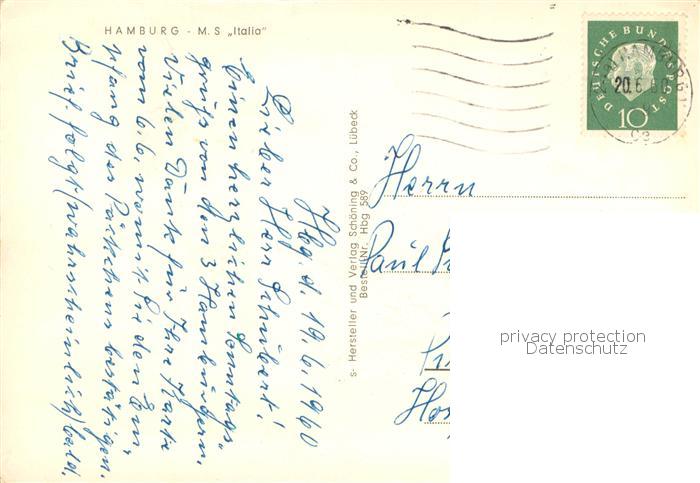 HAMBURG - M.S „Italia"
Hbg. d. 19.6.1960
Lieber Herr Schubert!
Einen herzlichen Sonntags-
gruß von den 3 Hamburgern.
Vielen Dank für Ihre Karte
vom 6.6, womit Sie den Em-
pfang des Päckchens bestätigen.
Brief folgt (wahrscheinlich) bald.
s- Hersteller und Verlag Schöning & Co., Lübeck
Bestell-Nr. Hbg 589
DEUTSCHE BUNDESPOST
10
HAMBURG 1
20.6.60
Herrn
Paul
privacy protection
Datenschutz